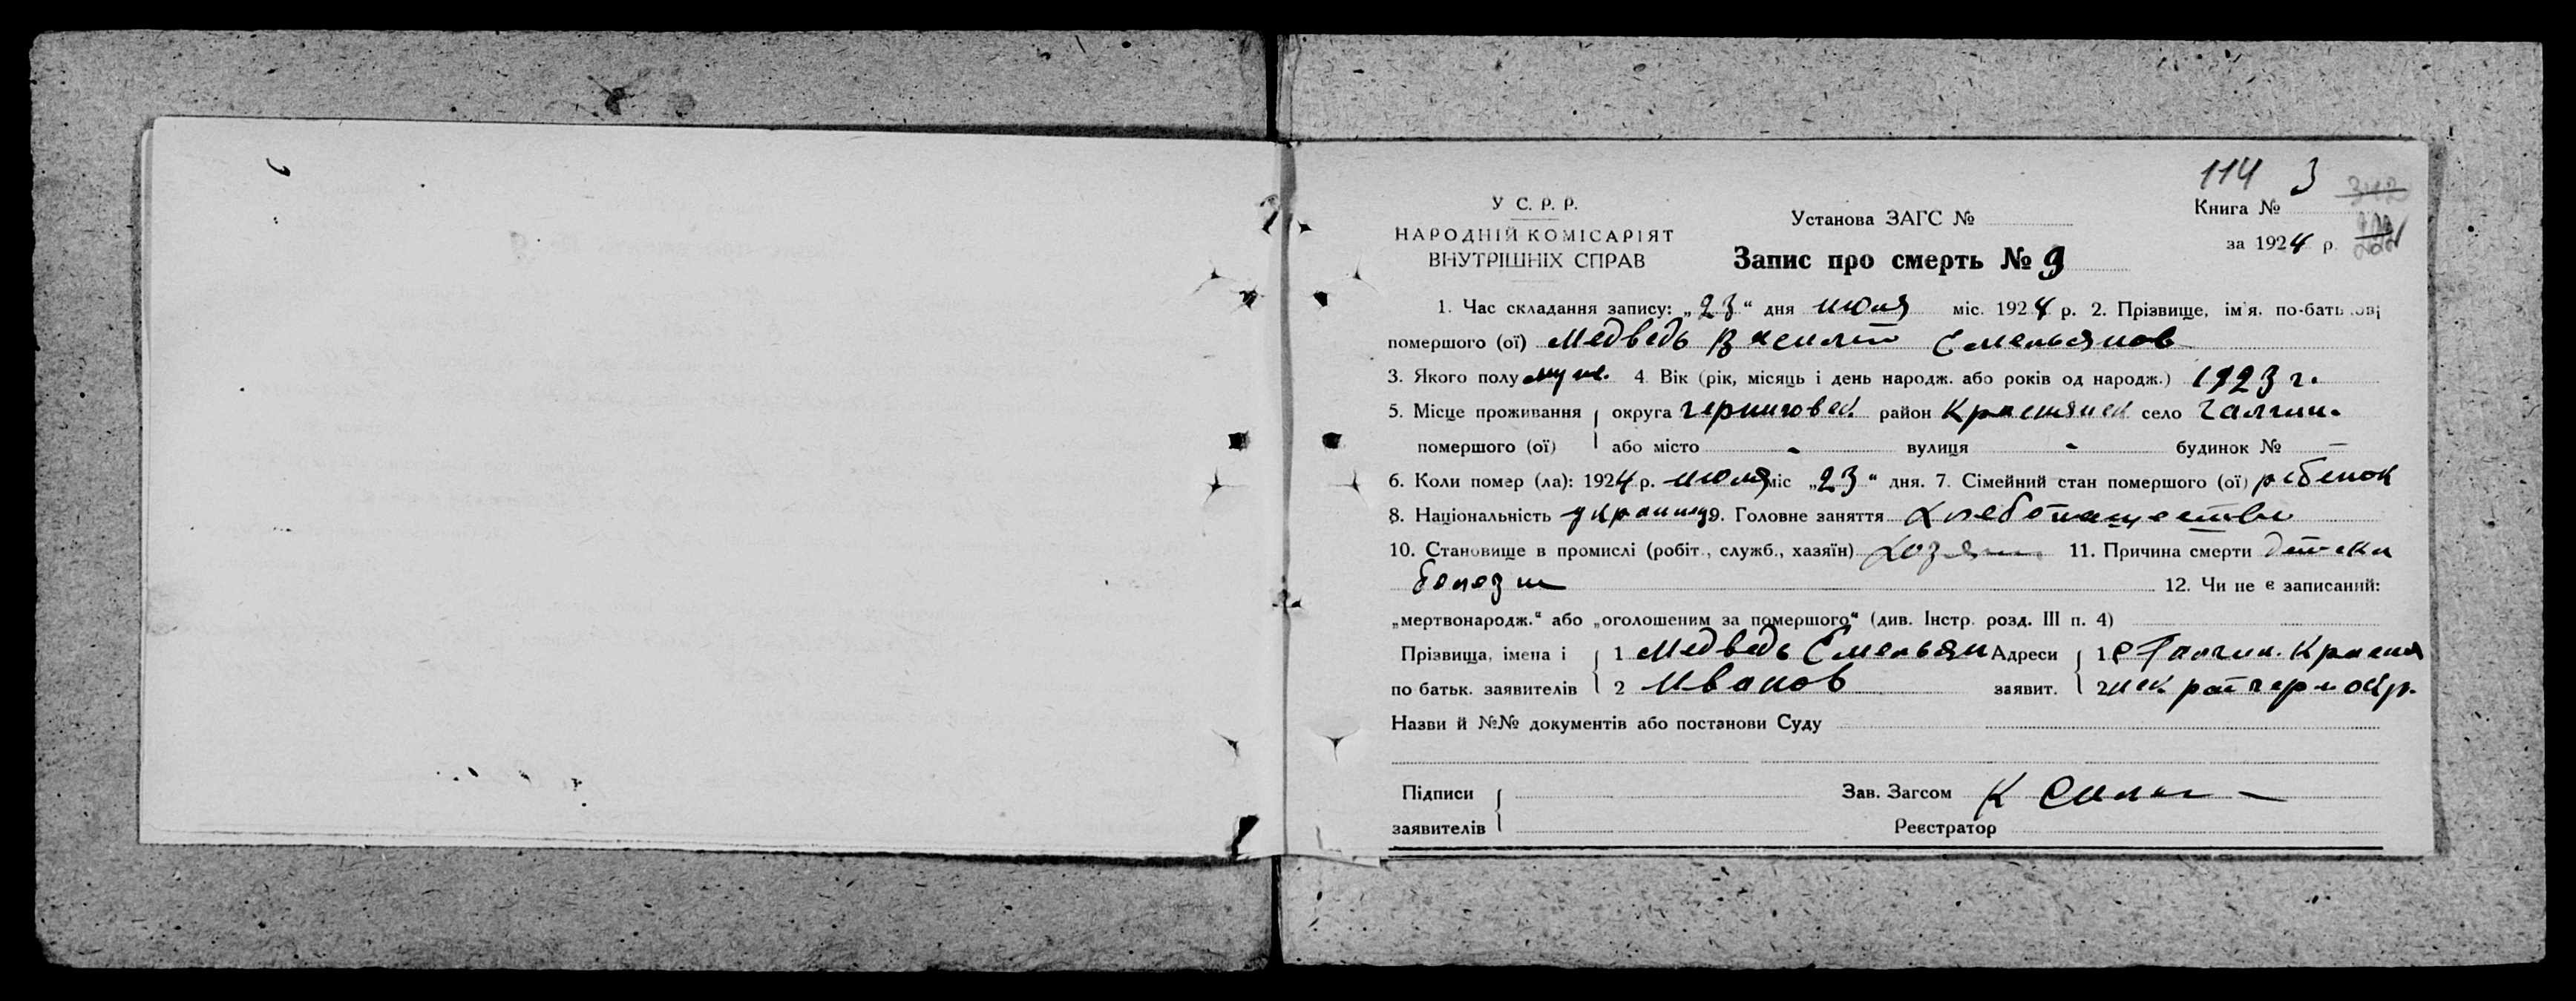 114 3
У С. Р. Р.
НАРОДНІЙ КОМІСАРІЯТ
ВНУТРІШНІХ СПРАВ
Установа ЗАГС №
Запис про смерть № 9
Книга №
за 1924 р.
1. Час складання запису: „23“ дня июля міс. 1924 р. 2. Прізвище, ім'я. по-батькові
помершого (ої) Медведь Василий Емельянов
3. Якого полу муж. 4. Вік (рік, місяць і день народж. або років од народж.) 1923 г.
5. Місце проживання округа Черниговск. район село
помершого (ої) або місто - вулиця - будинок № —
6. Коли помер (ла): 1924 р. июля міс „23“ дня. 7. Сімейний стан помершого (ої) ребенок
8. Національність 9. Головне заняття Хлебопашество
10. Становище в промислі (робіт., служб., хазяїн) Хозяин 11. Причина смерти
болезни 12. Чи не є записаний:
„мертвонародж.“ або „оголошеним за помершого“ (див. Інстр. розд. III п. 4)
Прізвища, імена і 1 Медведь Емельян Адреси 1
по батьк. заявителів 2 Иванов заявит. 2
Назви й №№ документів або постанови Суду
Підписи Зав. Загсом
заявителів Реєстратор